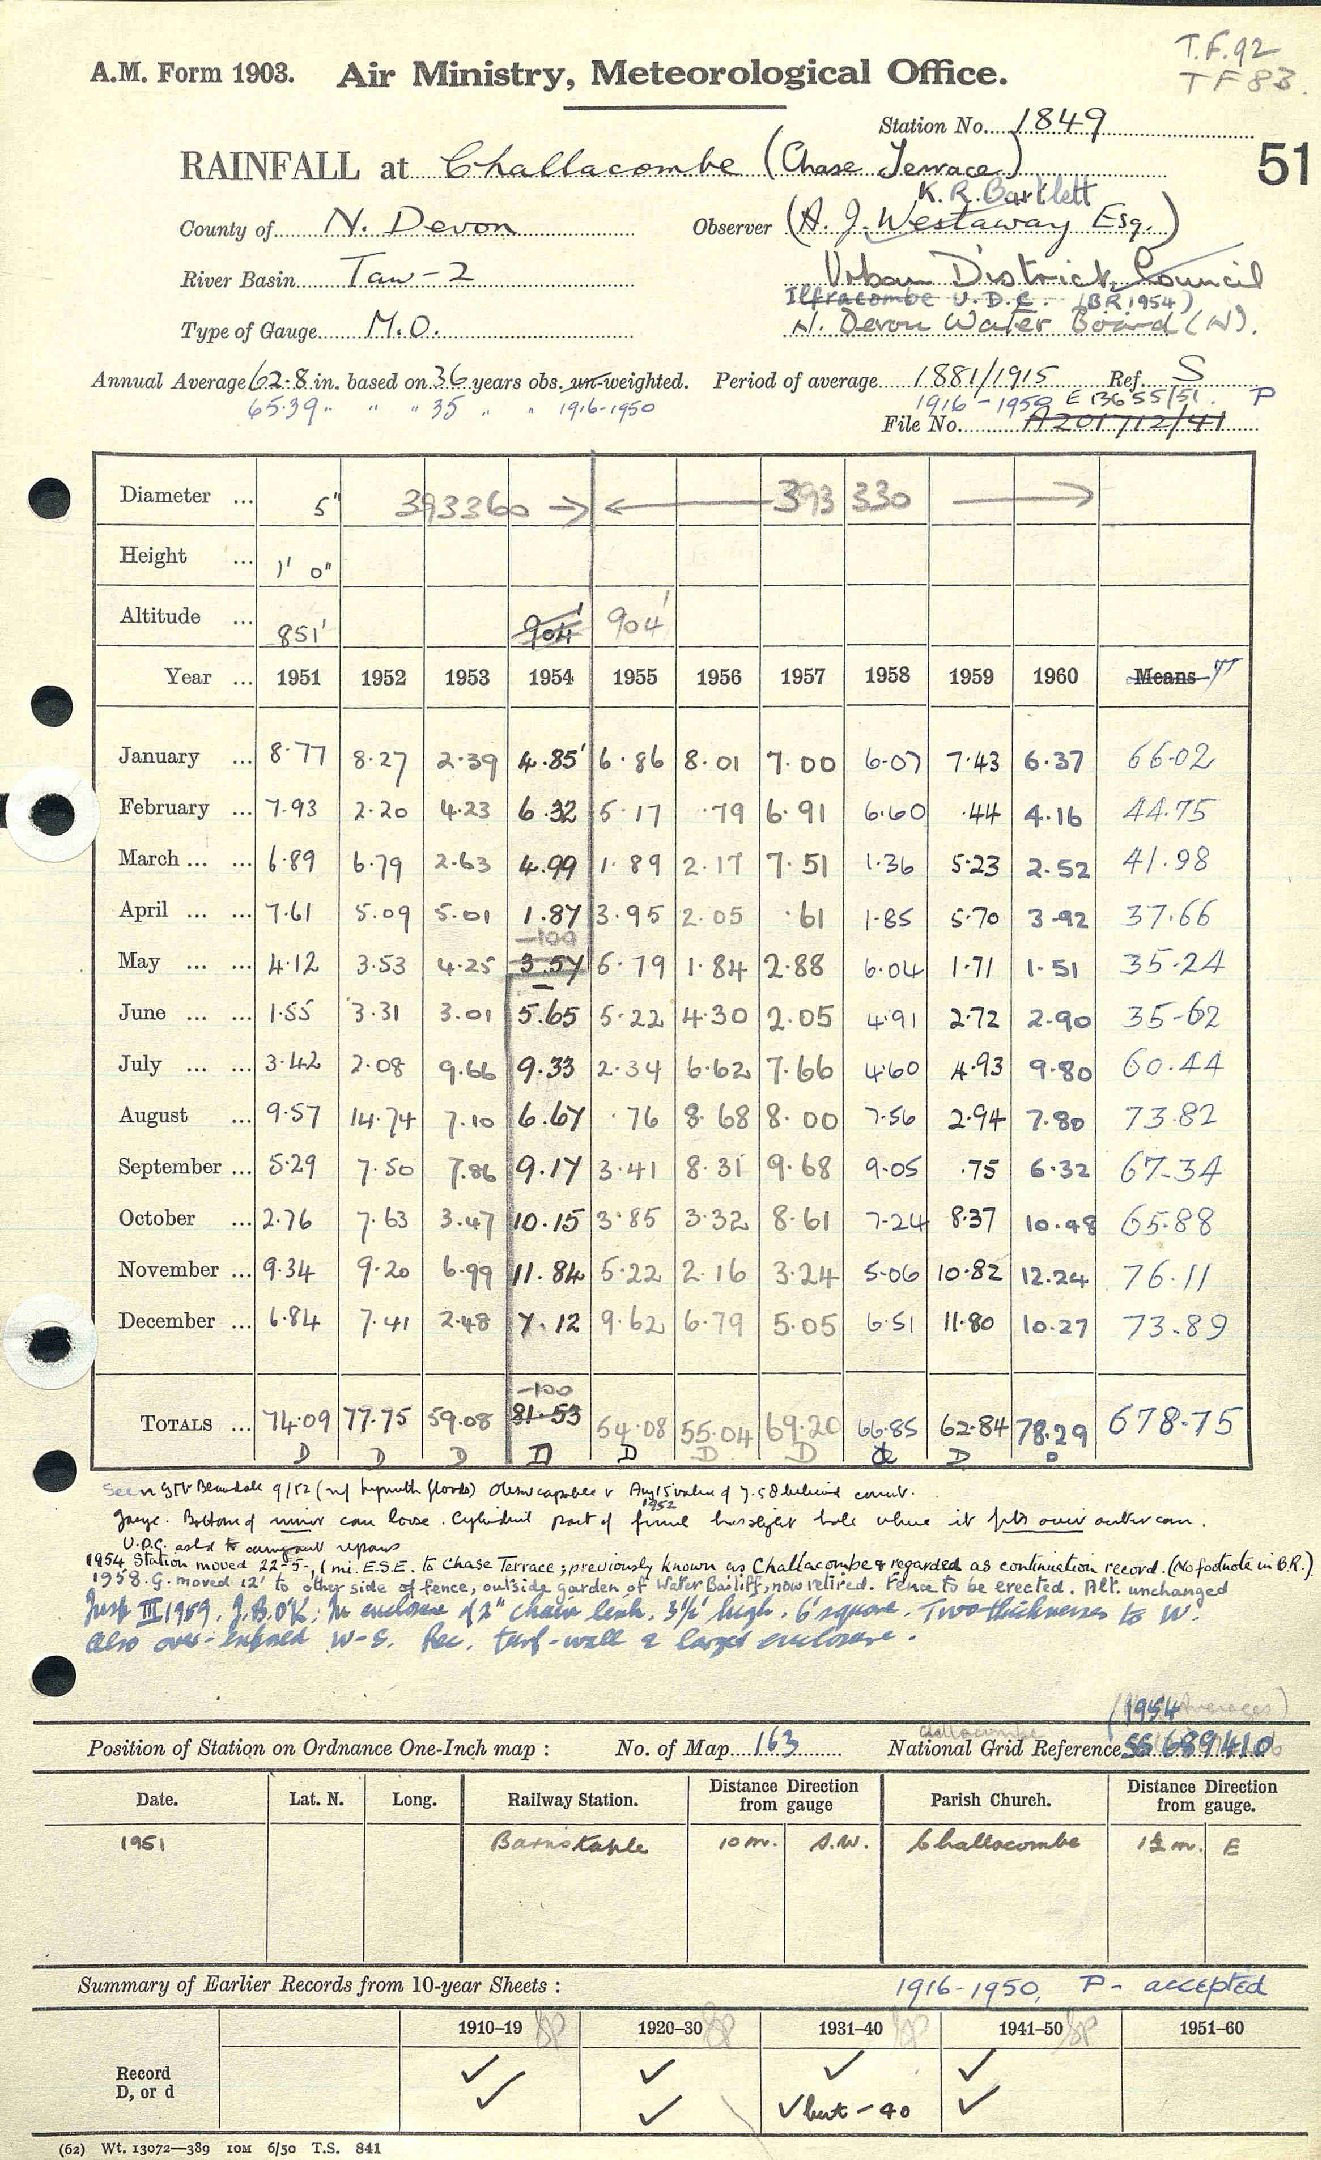 T.F.92
TF83.
A.M. Form 1903. Air Ministry, Meteorological Office.
Station No. 1849
51
RAINFALL at Challacombe (Chase Terrace)
K.R. Bartlett
County of N. Devon Observer (A. J. Westaway Esq.)
River Basin Taw-2 Urban District Council
Ilfracombe U.D.C. (BR 1954)
Type of Gauge M.O. N. Devon Water Board (W).
Annual Average 62.8 in. based on 36 years obs. un-weighted. Period of average 1881/1915 Ref. S
65.39 " " " 35 " " 1916-1950 1916-1950 E 13655/51. P
File No. A201712/41
Diameter ... 5" 393360 → ← 393 330 →
Height ... 1' 0"
Altitude ... 851' 904' 904'
Year ... 1951 1952 1953 1954 1955 1956 1957 1958 1959 1960 Means T
January ... 8.77 8.27 2.39 4.85 6.86 8.01 7.00 6.07 7.43 6.37 66.02
February ... 7.93 2.20 4.23 6.32 5.17 .79 6.91 6.60 .44 4.16 44.75
March ... ... 6.89 6.79 2.63 4.99 1.89 2.17 7.51 1.36 5.23 2.52 41.98
April ... ... 7.61 5.09 5.01 1.87 3.95 2.05 .61 1.85 5.70 3.92 37.66
-100
May ... ... 4.12 3.53 4.25 3.57 6.79 1.84 2.88 6.04 1.71 1.51 35.24
June ... ... 1.55 3.31 3.01 5.65 5.22 4.30 2.05 4.91 2.72 2.90 35.62
July ... ... 3.42 2.08 9.66 9.33 2.34 6.62 7.66 4.60 4.93 9.80 60.44
August ... 9.57 14.74 7.10 6.67 .76 8.68 8.00 7.56 2.94 7.80 73.82
September ... 5.29 7.50 7.86 9.17 3.41 8.31 9.68 9.05 .75 6.32 67.34
October ... 2.76 7.63 3.47 10.15 3.85 3.32 8.61 7.24 8.37 10.48 65.88
November ... 9.34 9.20 6.99 11.84 5.22 2.16 3.24 5.06 10.82 12.24 76.11
December ... 6.84 7.41 2.48 7.12 9.62 6.79 5.05 6.51 11.80 10.27 73.89
-100
TOTALS ... 74.09 77.75 59.08 81.53 54.08 55.04 69.20 66.85 62.84 78.29 678.75
D D D D D D D D D
Seen 9/52 (Lynmouth floods) Observer capable & Aug 15 value of 7.58 believed correct.
1952
Gauge. Bottom of inner can loose. Cylindrical part of funnel has slight hole where it fits over outer can.
U.D.C. asked to carry out repairs
1954 Station moved 22-5-, 1 mi. E.S.E. to Chase Terrace; previously known as Challacombe & regarded as continuation record. (No footnote in B.R.)
1958. G. moved 12' to other side of fence, outside garden of Water Bailiff, now retired. Fence to be erected. Alt. unchanged
Insp III 1959. J.B.O'K. In enclosure of 2" chain link, 3½' high, 6' square. Two thicknesses to W.
Also over-exposed W-S. Rec. turf-wall & larger enclosure.
(1954 Averages)
Challacombe
Position of Station on Ordnance One-Inch map : No. of Map 163 National Grid Reference SS 689410
Date. Lat. N. Long. Railway Station. Distance Direction from gauge Parish Church. Distance Direction from gauge.
1951 Barnstaple 10 m. S.W. Challacombe 1½ m. E
Summary of Earlier Records from 10-year Sheets : 1916-1950, P - accepted
1910–19 1920–30 1931–40 1941–50 1951–60
Record ✓ ✓ ✓ ✓
D, or d ✓ ✓ ✓ but - 40 ✓
(62) Wt. 13072—389 10M 6/50 T.S. 841